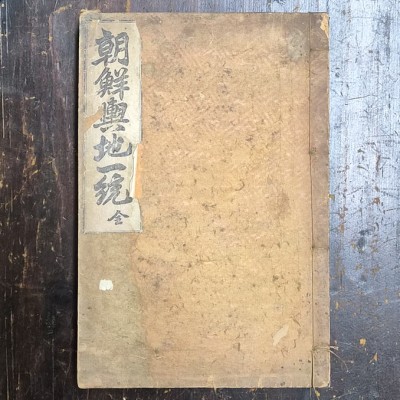 朝鮮輿地一統
全